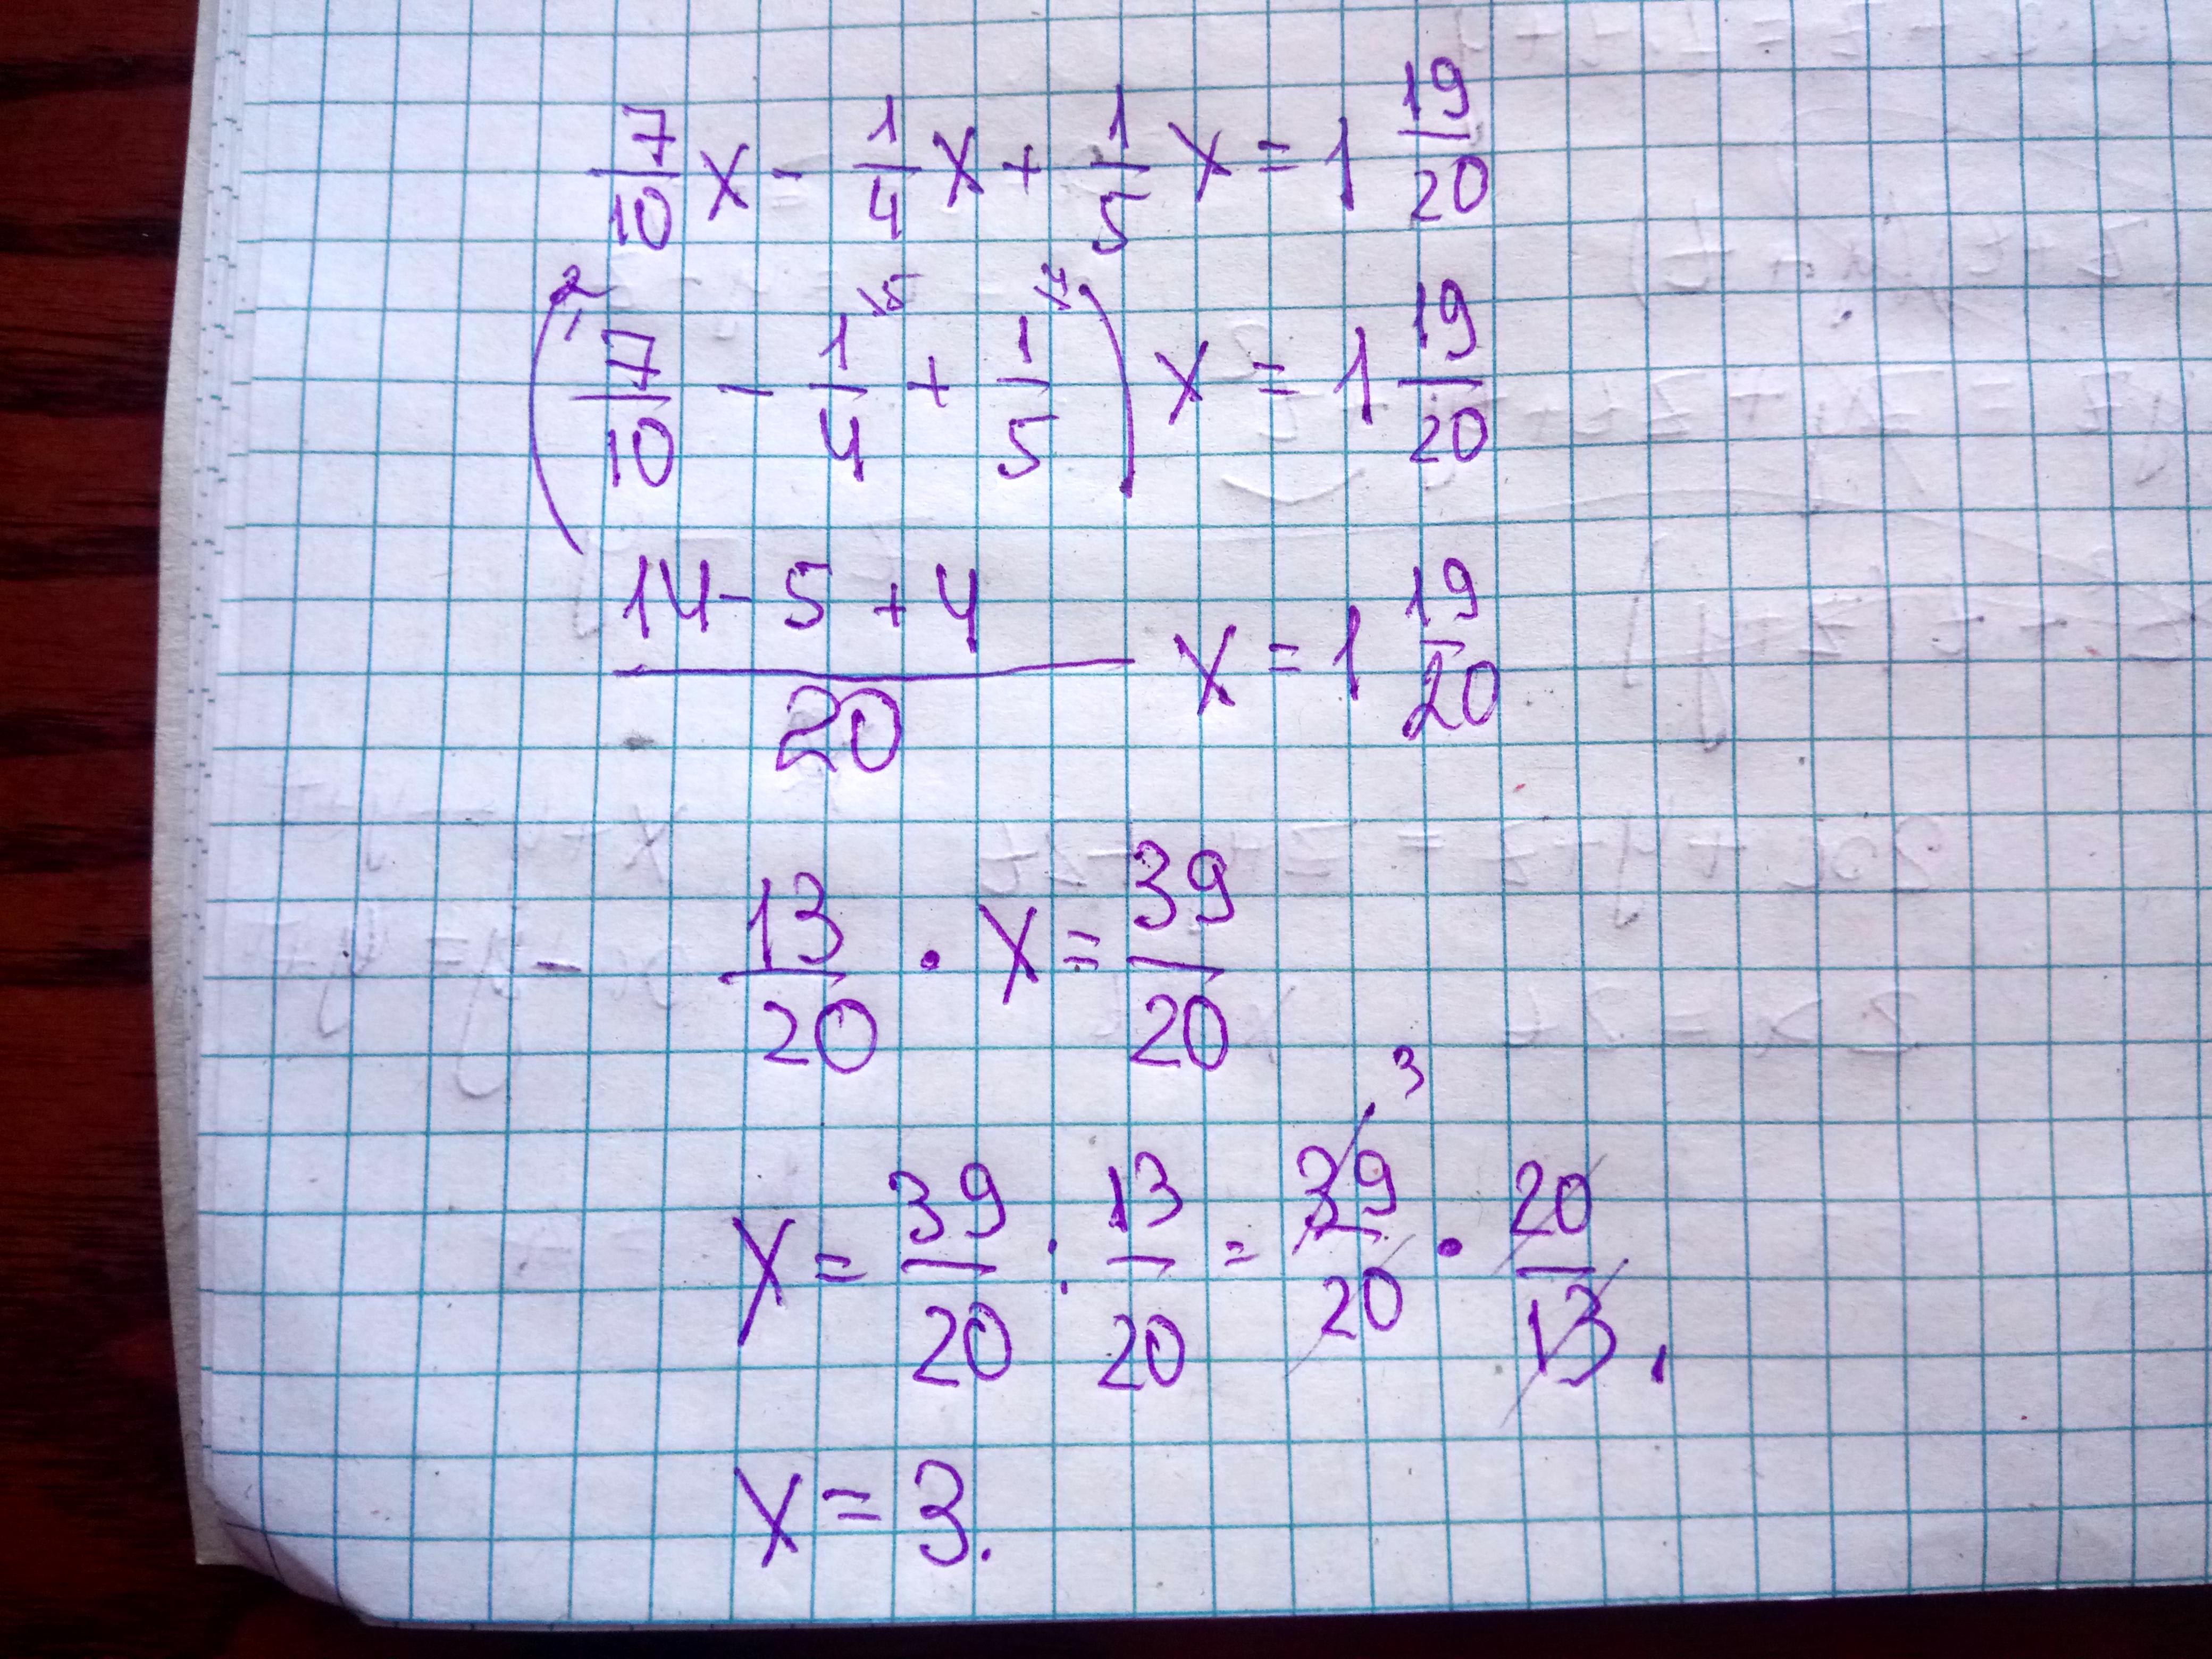 7/10 x - 1/4 x + 1/5 x = 1 19/20
(2 7/10 - 1/4 5 + 1/5 4) x = 1 19/20
14 - 5 + 4 / 20 x = 1 19/20
13/20 · x = 39/20
x = 39/20 : 13/20 = 39/20 3 · 20/13 .
x = 3.